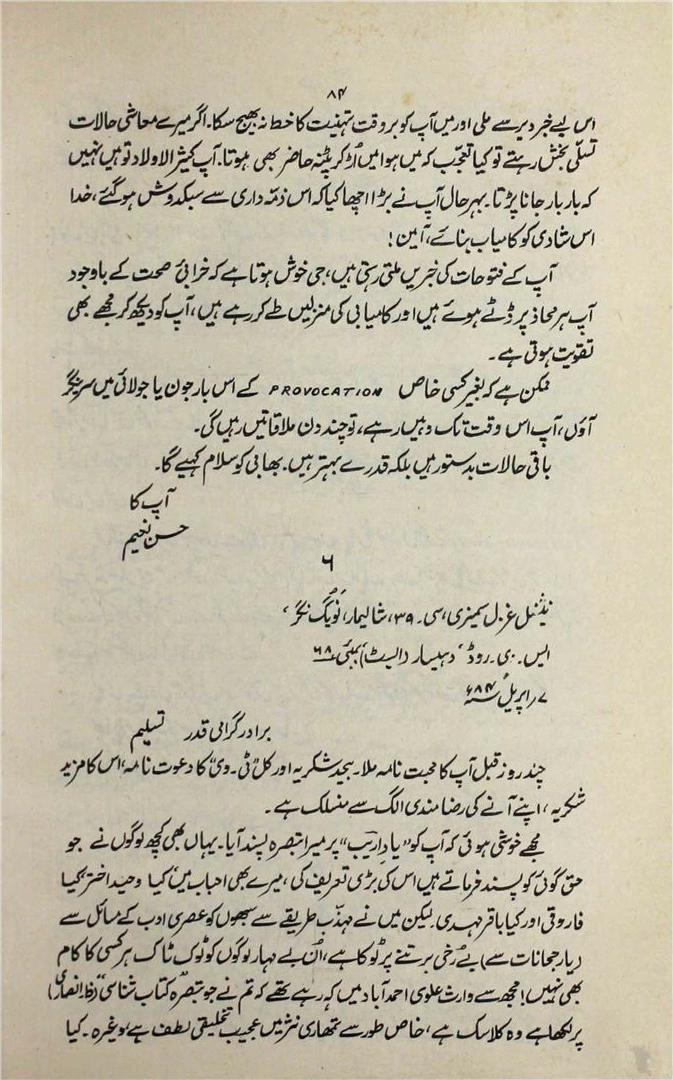 ۸۴
اس لیے خبر دیر سے ملی اور میں آپ کو بر وقت تہنیت کا خط نہ بھیج سکا۔ اگر میرے معاشی حالات
تسلّی بخش رہتے تو کیا تعجّب کہ میں ہوا میں اُڑ کر پٹنہ حاضر بھی ہوتا۔ آپ کثیر الاولاد تو ہیں نہیں
کہ بار بار جانا پڑتا۔ بہر حال آپ نے بڑا اچھا کیا کہ اس ذمّہ داری سے سبکدوش ہو گئے، خدا
اس شادی کو کامیاب بنائے، آمین!
آپ کے فتوحات کی خبریں ملتی رہتی ہیں، جی خوش ہوتا ہے کہ خرابیٔ صحت کے باوجود
آپ ہر محاذ پر ڈٹے ہوئے ہیں اور کامیابی کی منزلیں طے کر رہے ہیں، آپ کو دیکھ کر مجھے بھی
تقویت ہوتی ہے۔
ممکن ہے کہ بغیر کسی خاص PROVOCATION کے اس بار جون یا جولائی میں سرینگر
آؤں، آپ اس وقت تک وہیں رہے، تو چند دن ملاقاتیں رہیں گی۔
باقی حالات بدستور ہیں بلکہ قدرے بہتر ہیں۔ بھابی کو سلام کہیے گا۔
آپ کا
حسن نعیم
۶
نیشنل غزل سمینری، سی۔ ۳۹، شالیمار، نَویُگ نگر،
ایس۔ بی۔ روڈ، دہیسار (ایسٹ) بمبئی ۶۸
۷؍ اپریل ۸۴ء
برادر گرامی قدر تسلیم
چند روز قبل آپ کا محبت نامہ ملا۔ بیحد شکریہ اور کل ٹی۔ وی کا دعوت نامہ، اس کا مزید
شکریہ، اپنے آنے کی رضا مندی الگ سے منسلک ہے۔
مجھے خوشی ہوئی کہ آپ کو "یادِ اریب" پر میرا تبصرہ پسند آیا۔ یہاں بھی کچھ لوگوں نے جو
حق گوئی کو پسند فرماتے ہیں اس کی بڑی تعریف کی، میرے بھی احباب میں کیا وحید اختر، کیا
فاروقی اور کیا باقر مہدی۔ لیکن میں نے مہذّب طریقے سے سبھوں کو عصری ادب کے مسائل سے
(یا رجحانات سے) بے رُخی برتنے پر ٹوکا ہے، اُن بے مہار لوگوں کو ٹوک ٹاک ہر کسی کا کام
بھی نہیں! مجھ سے وارث علوی احمد آباد میں کہہ رہے تھے کہ تم نے جو تبصرہ کتاب شناسی" (ظ انصاری)
پر لکھا ہے وہ کلاسک ہے، خاص طور سے تمھاری نثر میں عجیب تخلیقی لطف ہے، وغیرہ۔ کیا